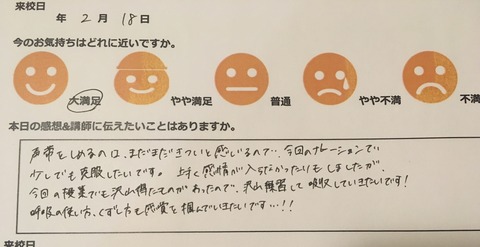 来校日
年 2 月 18 日
今のお気持ちはどれに近いですか。
大満足 やや満足 普通 やや不満 不満
本日の感想&講師に伝えたいことはありますか。
声帯をしめるのは、まだまだきついと感じるので、今回のナレーションで
少しでも克服したいです。上手く感情が入らなかったりもしましたが、
今回の授業でも沢山得たものがあったので、沢山練習して吸収していきたいです!
呼吸の使い方、くずし方も感覚を掴んでいきたいです…!!
来校日